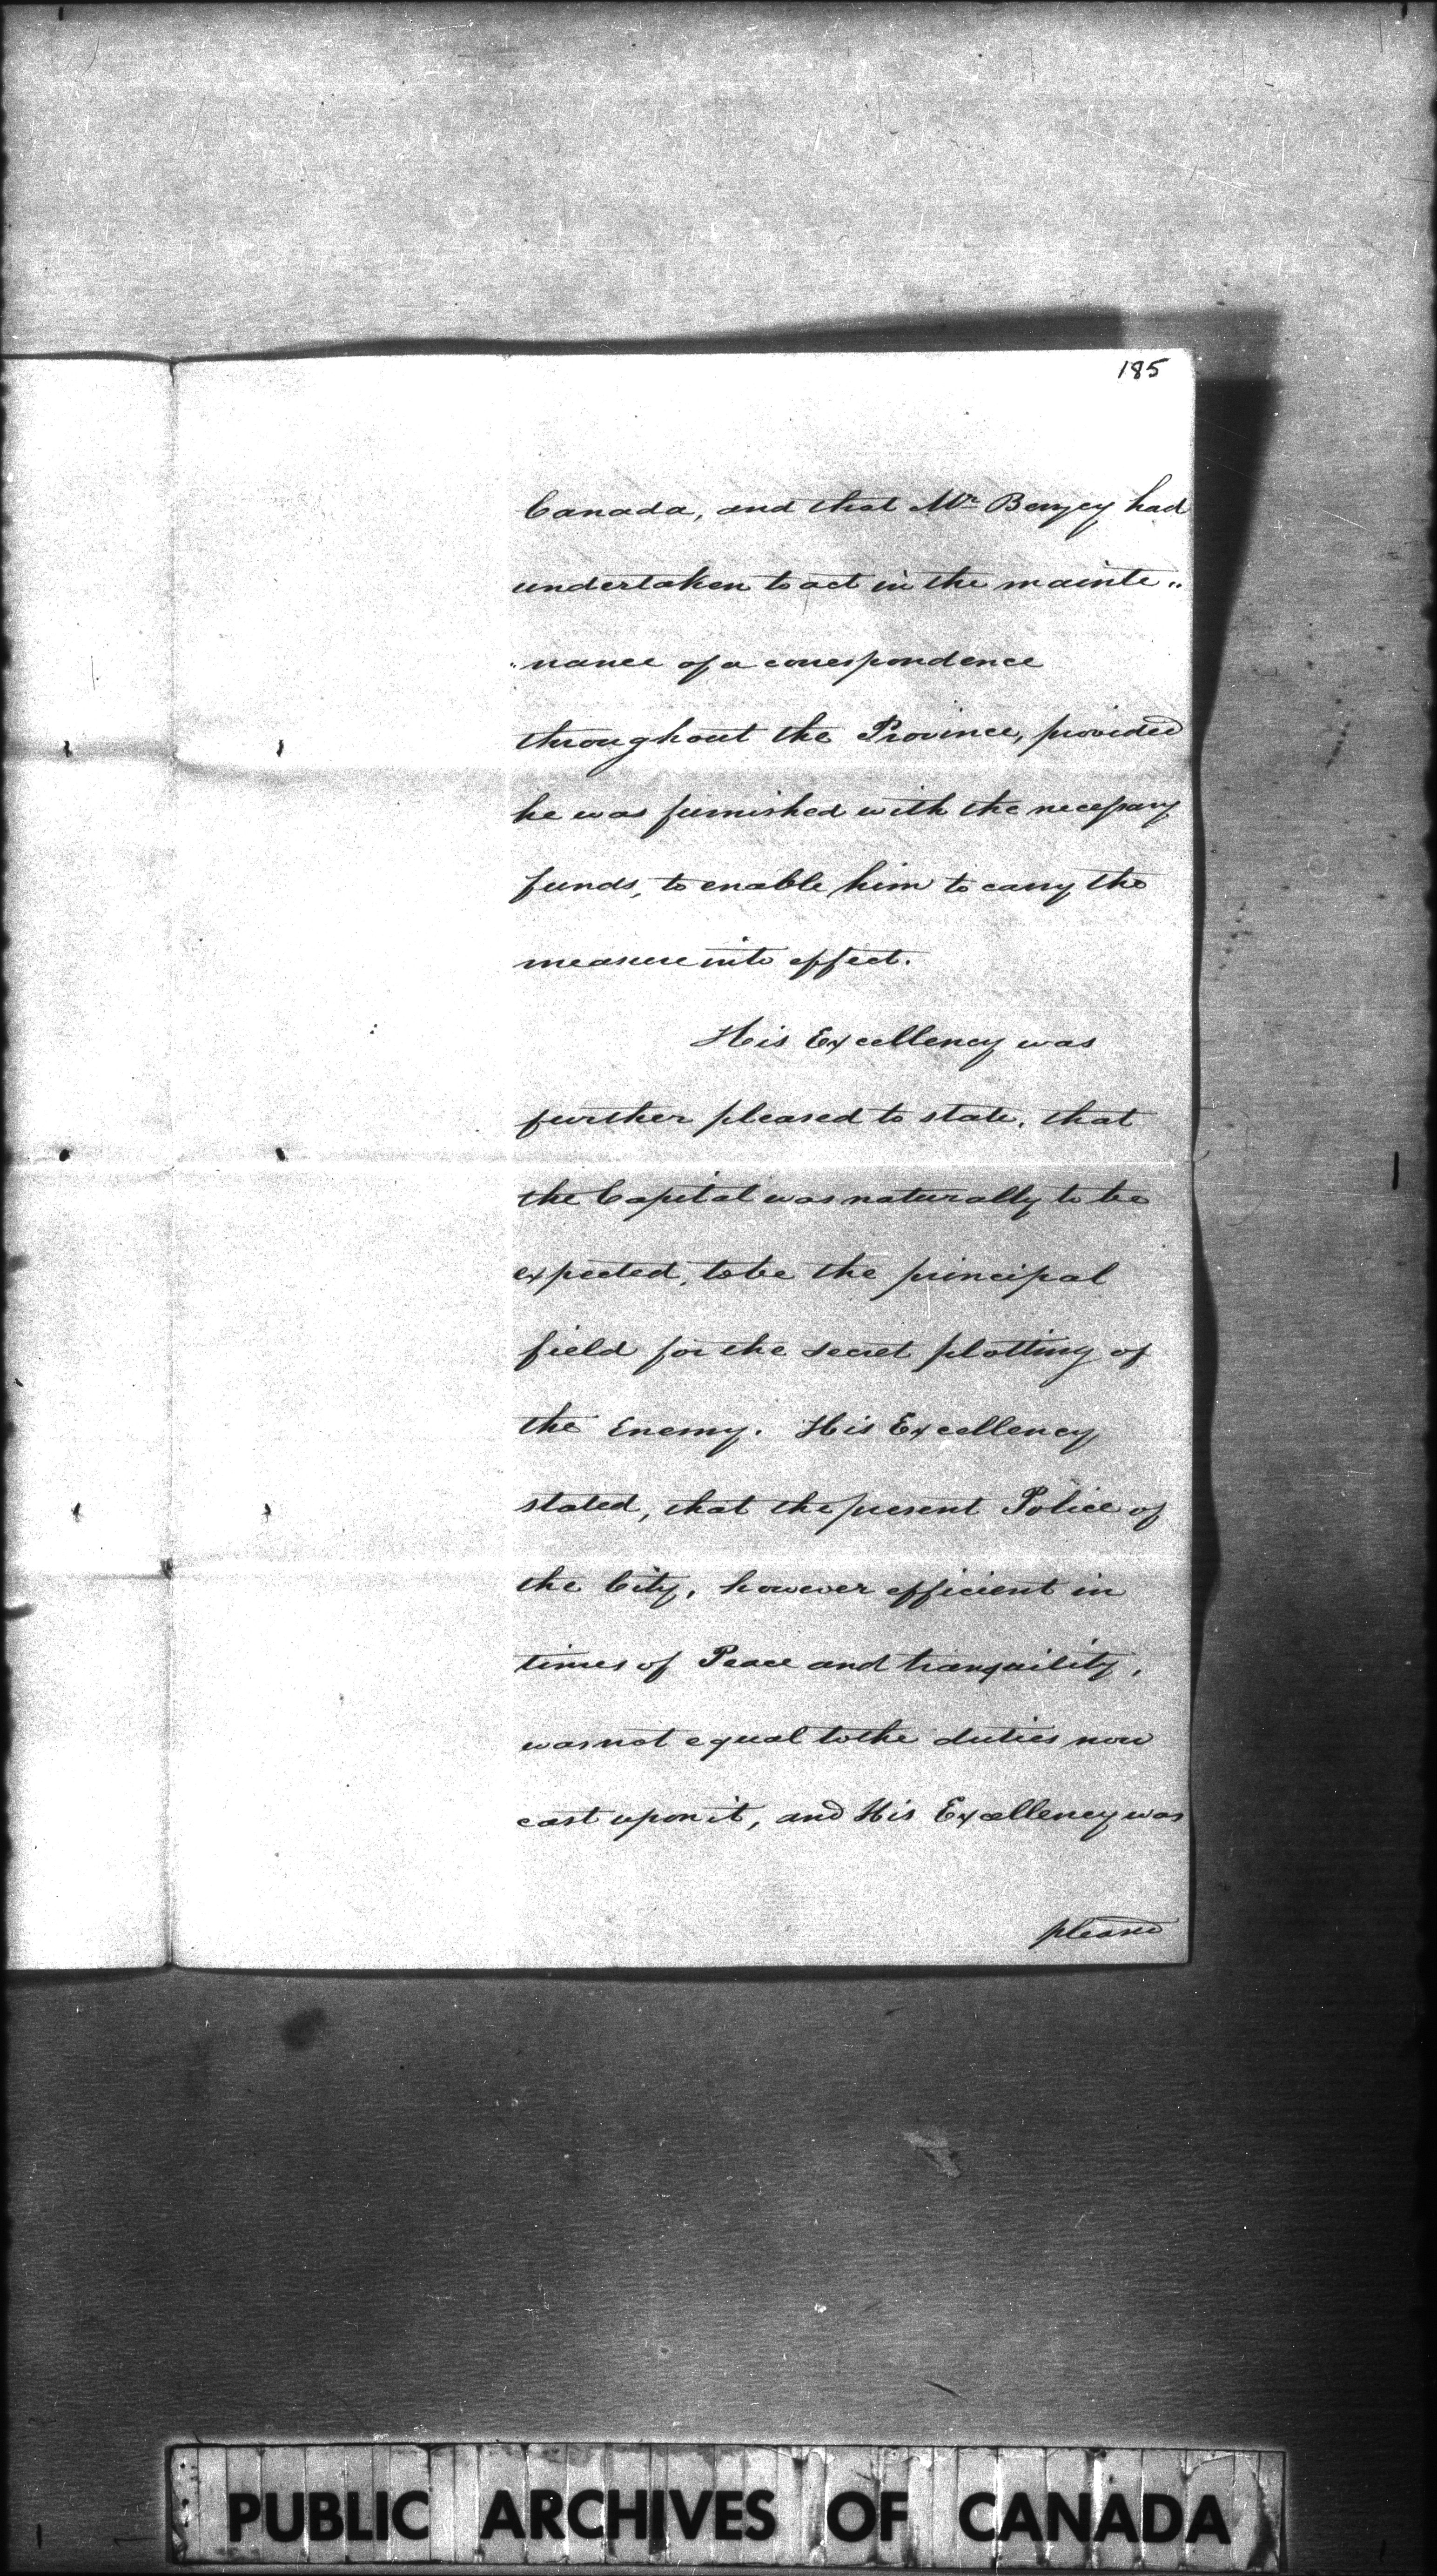 185
Canada, and that Mr. Berczy had
undertaken to act in the mainte"
"nance of a correspondence
throughout the Province, provided
he was furnished with the necessary
funds, to enable him to carry the
measure into effect.
His Excellency was
further pleased to state, that
the Capital was naturally to be
expected, to be the principal
field for the secret plotting of
the Enemy. His Excellency
stated, that the present Police of
the City, however efficient in
times of Peace and tranquility,
was not equal to the duties now
cast upon it, and His Excellency was
pleased
PUBLIC ARCHIVES OF CANADA